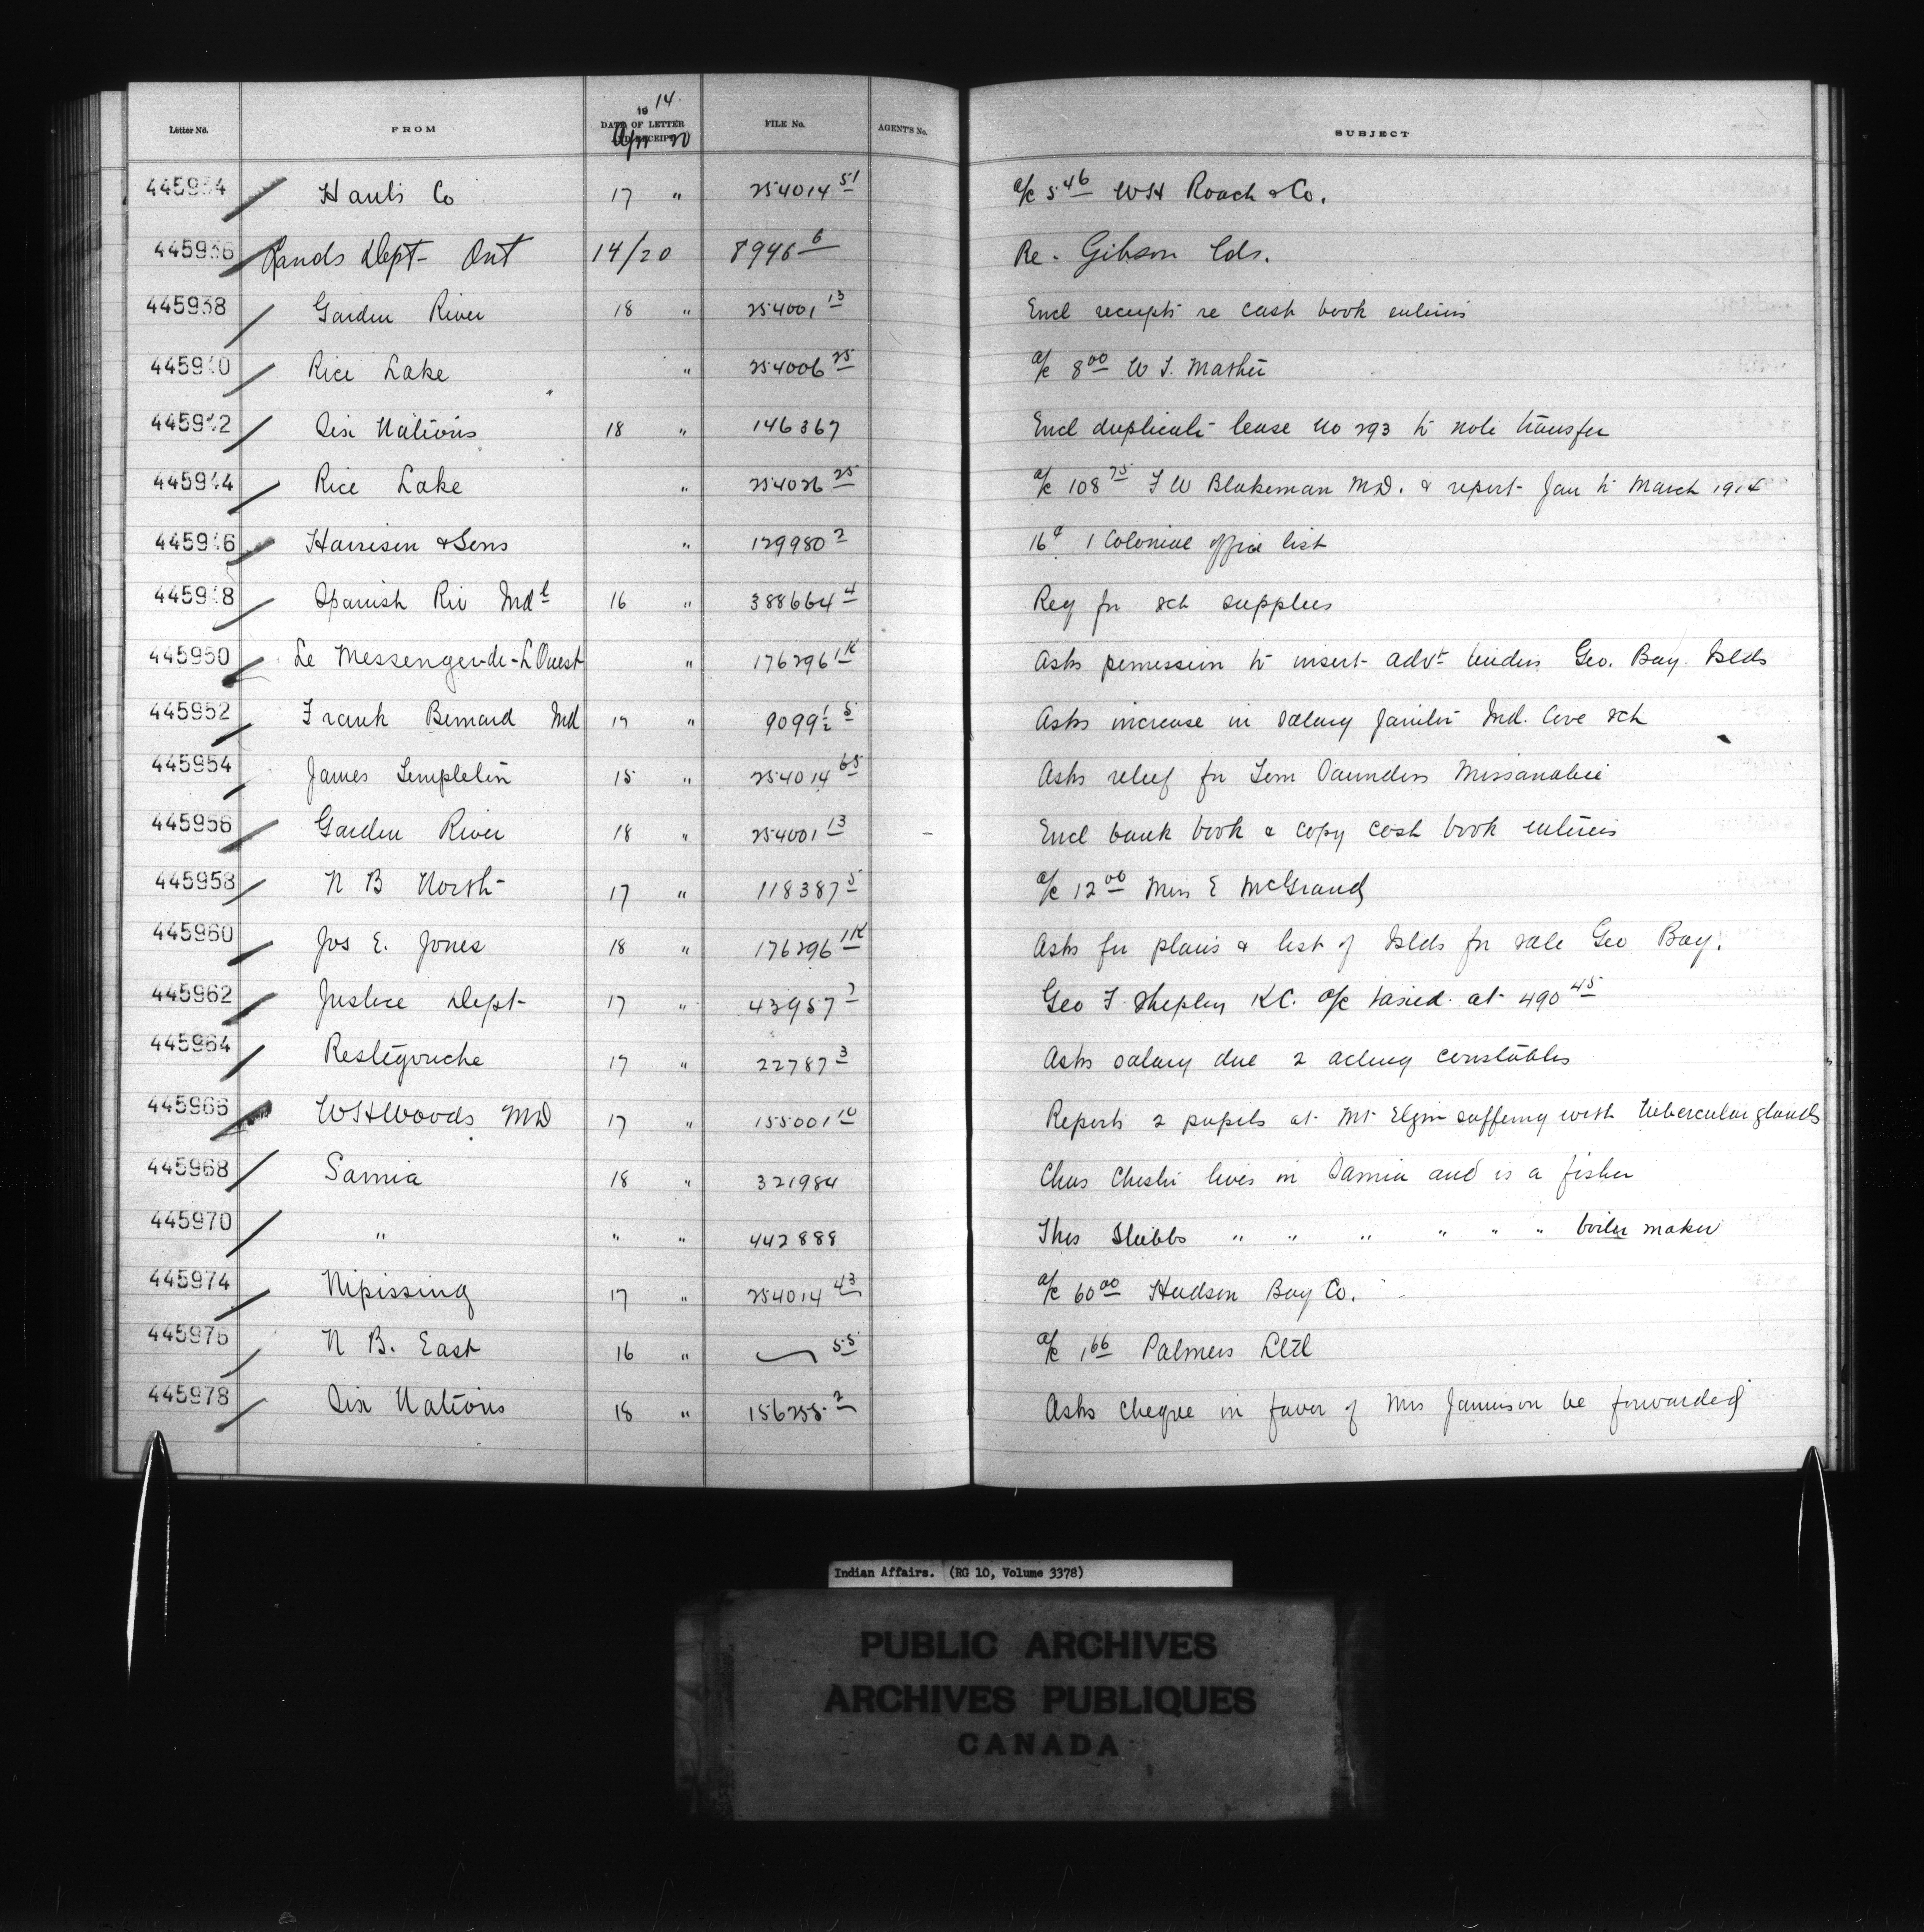 Letter No. FROM 1914. DATE OF LETTER AND RECEIPT Apr 20 FILE No. AGENT'S No. SUBJECT
445934 Hants Co 17 " 254014 51 a/c 5 46 WH Roach & Co.
445936 Lands Dept Ont 14/20 8946 6 Re. Gibson lds.
445938 Garden River 18 " 254001 13 Encl receipts re cash book entries
445940 Rice Lake " 254006 25 a/c 8 00 W J. Mather
445942 Six Nations 18 " 146367 Encl duplicate lease no 293 to note transfer
445944 Rice Lake " 254026 25 a/c 108 75 F W Blakeman MD. & report Jan to March 1914
445946 Harrison & Sons " 129980 2 1 Colonial office list
445948 Spanish Riv Indl 16 " 388664 4 Req for sch supplies
445950 Le Messenger-de-L'Ouest " 176296 1K Asks permission to insert advt tenders Geo. Bay. Islds
445952 Frank Bernard Ind 17 " 9099 1/2 5 Asks increase in salary janitor Ind. Cove sch
445954 James Templetin 15 " 254014 65 Asks relief for Tom Saunders Missanabie
445956 Garden River 18 " 254001 13 Encl bank book & copy cash book entries
445958 N B North 17 " 118387 5 a/c 12 00 Miss E McGrand
445960 Jos E. Jones 18 " 176296 1K Asks for plans & list of Islds for sale Geo Bay.
445962 Justice Dept 17 " 43957 7 Geo F Shepley KC. a/c taxed at 490 45
445964 Restigouche 17 " 22787 3 Asks salary due 2 acting constables
445966 WH Woods MD 17 " 155001 10 Reports 2 pupils at Mt Elgin suffering with tubercular glands
445968 Sarnia 18 " 321984 Chas lives in Sarnia and is a fisher
445970 " " " 442888 Thos Stubbs " " " " " " boiler maker
445974 Nipissing 17 " 254014 43 a/c 60 00 Hudson Bay Co.
445976 N B. East 16 " 55 a/c 1 66 Palmers Ltd
445978 Six Nations 18 " 156255 2 Asks cheque in favor of Mrs Jamieson be forwarded
Indian Affairs. (RG 10, Volume 3378)
PUBLIC ARCHIVES
ARCHIVES PUBLIQUES
CANADA